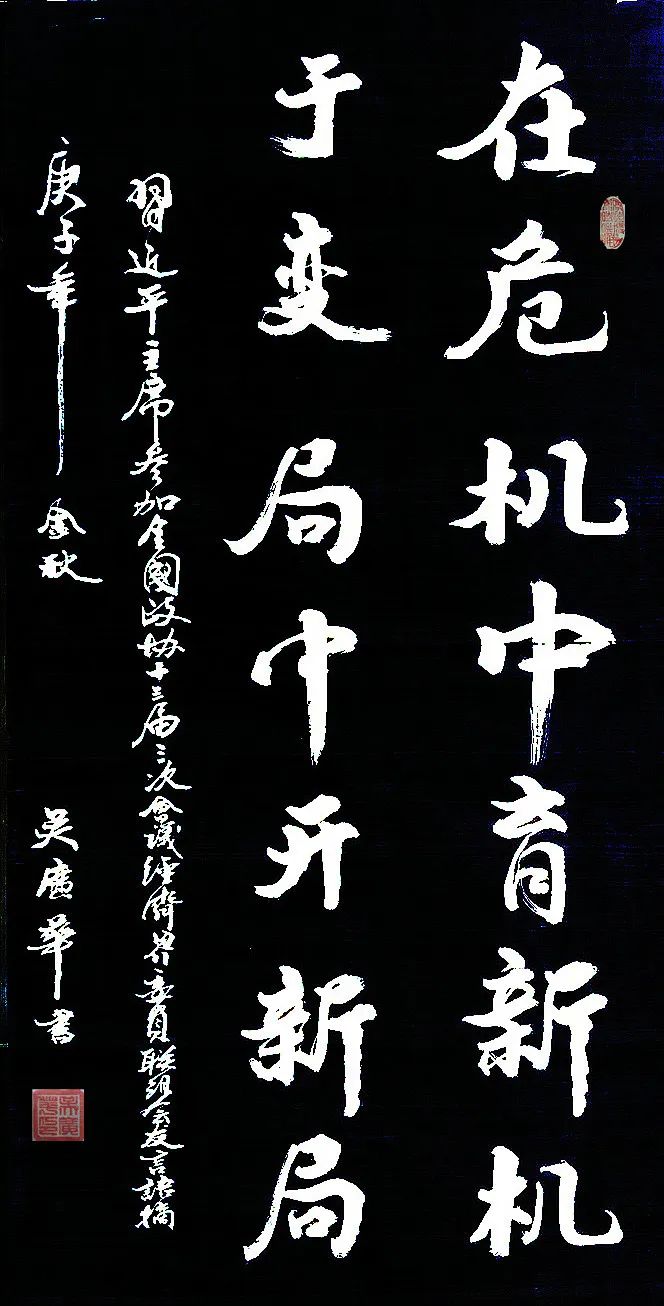 在危机中育新机
于变局中开新局
習近平主席参加全國政协十三届三次会議经济界委員联组会发言語摘
庚子年金秋
吴廣華書